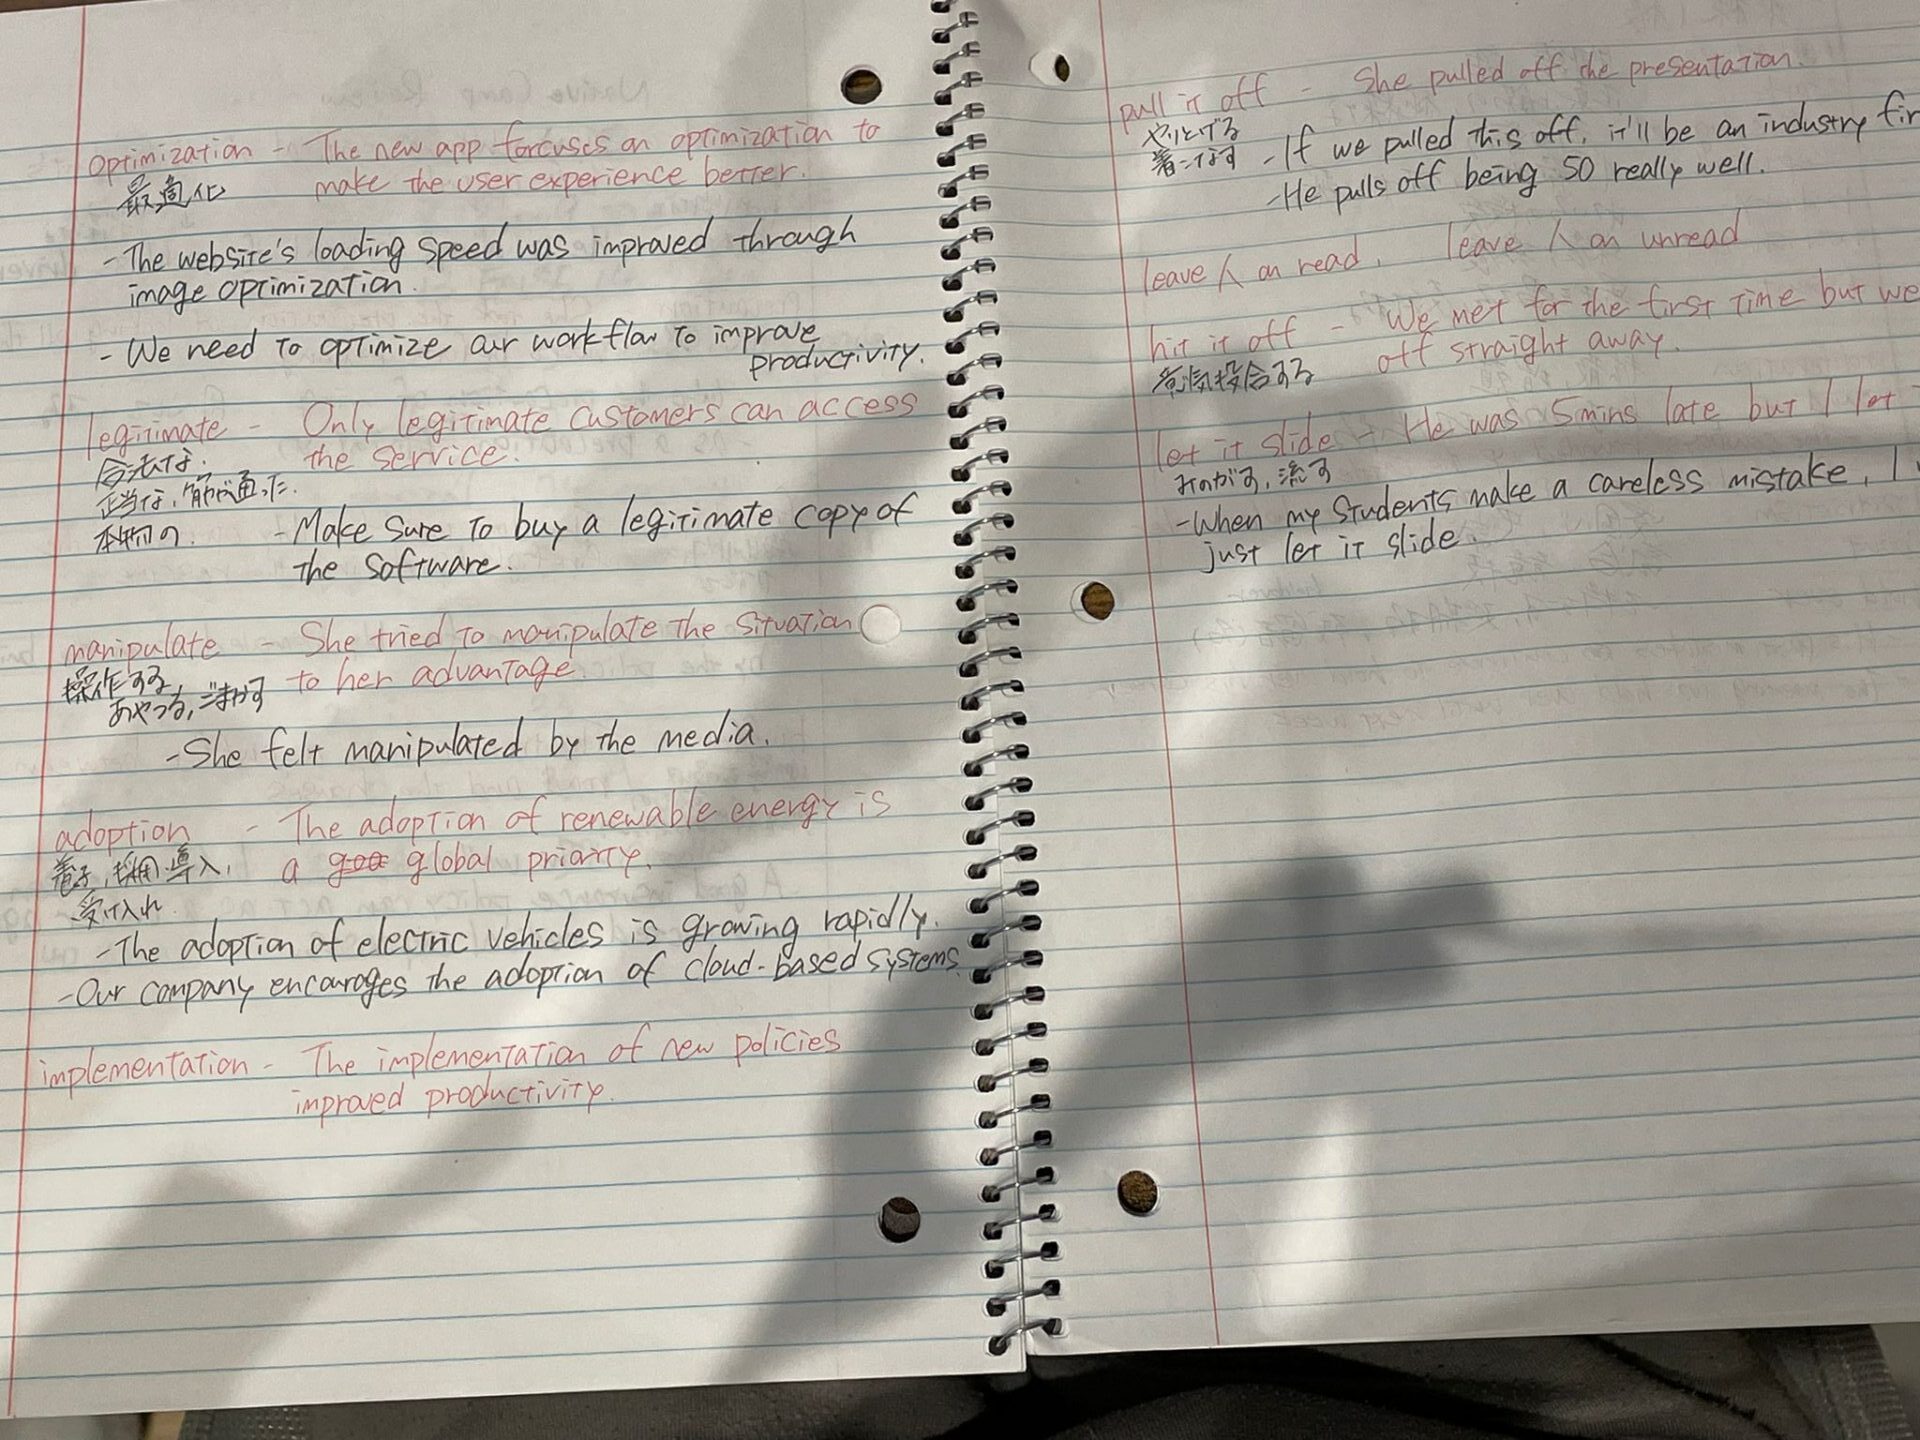 optimization - The new app forcuses on optimization to
最適化 make the user experience better.
- The website's loading speed was improved through
image optimization.
- We need to optimize our workflow to improve
productivity.
legitimate - Only legitimate customers can access
合法な. the service.
正当な, 筋が通った.
本物の. - Make sure to buy a legitimate copy of
the software.
manipulate - She tried to manipulate the situation
操作する, to her advantage.
あやつる, ごまかす
- She felt manipulated by the media.
adoption - The adoption of renewable energy is
養子, 採用, 導入, a global priority.
受け入れ
- The adoption of electric vehicles is growing rapidly.
- Our company encourages the adoption of cloud-based systems.
implementation - The implementation of new policies
improved productivity.
pull it off - She pulled off the presentation.
やりとげる
着こなす - If we pulled this off, it'll be an industry fir
- He pulls off being 50 really well.
leave 人 on read, leave 人 on unread
hit it off - We met for the first time but we
意気投合する off straight away.
let it slide - He was 5mins late but I let
みのがす, 流す
- When my students make a careless mistake, I
just let it slide.